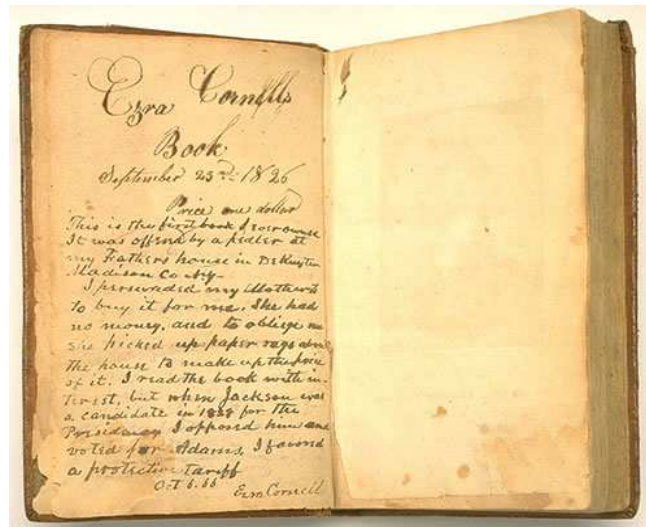 Ezra Cornells
Book
September 23rd: 1826
Price one dollar
This is the first book I ever owned
It was offerd by a pedler at
my Fathers house in DeRuyter
Madison Co Ny-
I perswaded my Mother
to buy it for me. She had
no money, and to obliege me
she picked up paper rags about
the house to make up the price
of it. I read the book with in-
terest, but when Jackson was
a candidate in 1828 for the
Presidency I opposed him and
voted for Adams, I favord
a protective tariff
Oct 6. 66
Ezra Cornell